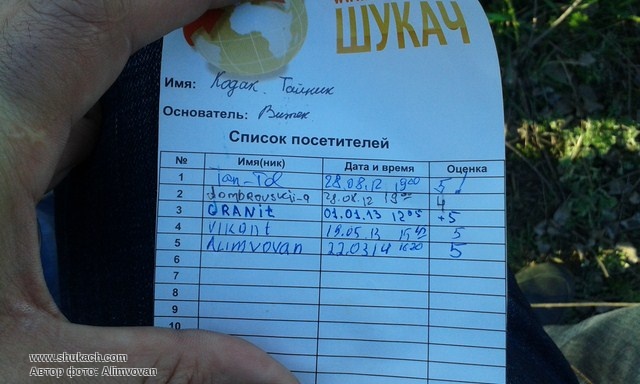 ШУКАЧ
Имя: Кодак. Тайник
Основатель: Витек
Список посетителей
№ Имя(ник) Дата и время Оценка
1 Tan-Tol 28.08.12 19:00 5!
2 Dombrovskij-a 4
3 GRANit 01.01.13 12:05 +5
4 VIKont 19.05.13 5
5 ALIMVOVAN 22.03.14 5
6
7
8
9
10
www.shukach.com
Автор фото: Alimvovan